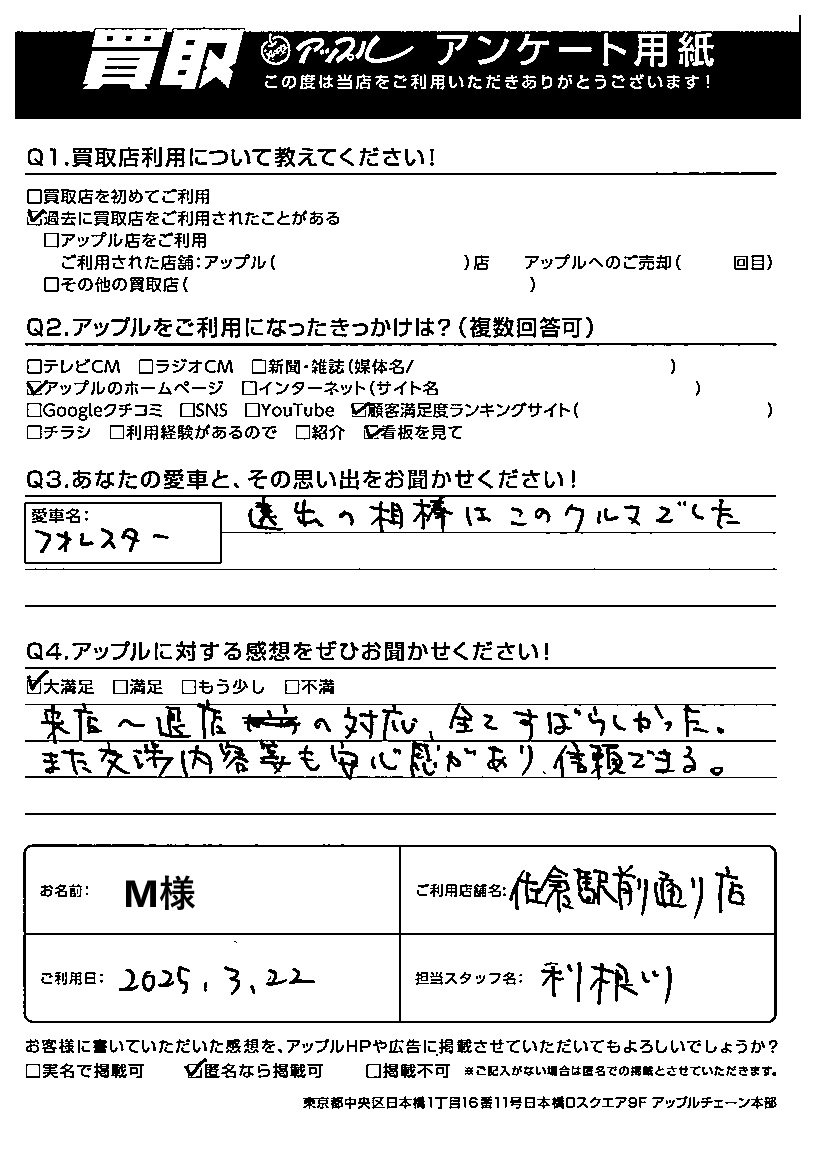 買取 アップル アンケート用紙
この度は当店をご利用いただきありがとうございます!
Q1.買取店利用について教えてください!
□買取店を初めてご利用
☑過去に買取店をご利用されたことがある
□アップル店をご利用
ご利用された店舗:アップル( )店 アップルへのご売却( 回目)
□その他の買取店( )
Q2.アップルをご利用になったきっかけは?(複数回答可)
□テレビCM □ラジオCM □新聞・雑誌(媒体名/ )
☑アップルのホームページ □インターネット(サイト名 )
□Googleクチコミ □SNS □YouTube ☑顧客満足度ランキングサイト( )
□チラシ □利用経験があるので □紹介 ☑看板を見て
Q3.あなたの愛車と、その思い出をお聞かせください!
愛車名:
フォレスター
遠出の相棒はこのクルマでした
Q4.アップルに対する感想をぜひお聞かせください!
☑大満足 □満足 □もう少し □不満
来店〜退店の対応、全てすばらしかった。
また交渉内容等も安心感があり、信頼できる。
お名前: M様
ご利用店舗名: 佐倉駅前通り店
ご利用日: 2025.3.22
担当スタッフ名: 利根川
お客様に書いていただいた感想を、アップルHPや広告に掲載させていただいてもよろしいでしょうか?
□実名で掲載可 ☑匿名なら掲載可 □掲載不可 ※ご記入がない場合は匿名での掲載とさせていただきます。
東京都中央区日本橋1丁目16番11号日本橋Dスクエア9F アップルチェーン本部